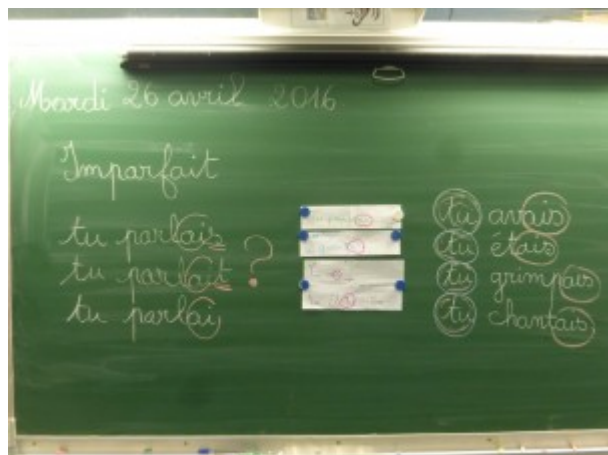 Mardi 26 avril 2016
Imparfait
tu parlais
tu parlait ?
tu parlai
tu avais
tu étais
tu grimpais
tu chantais